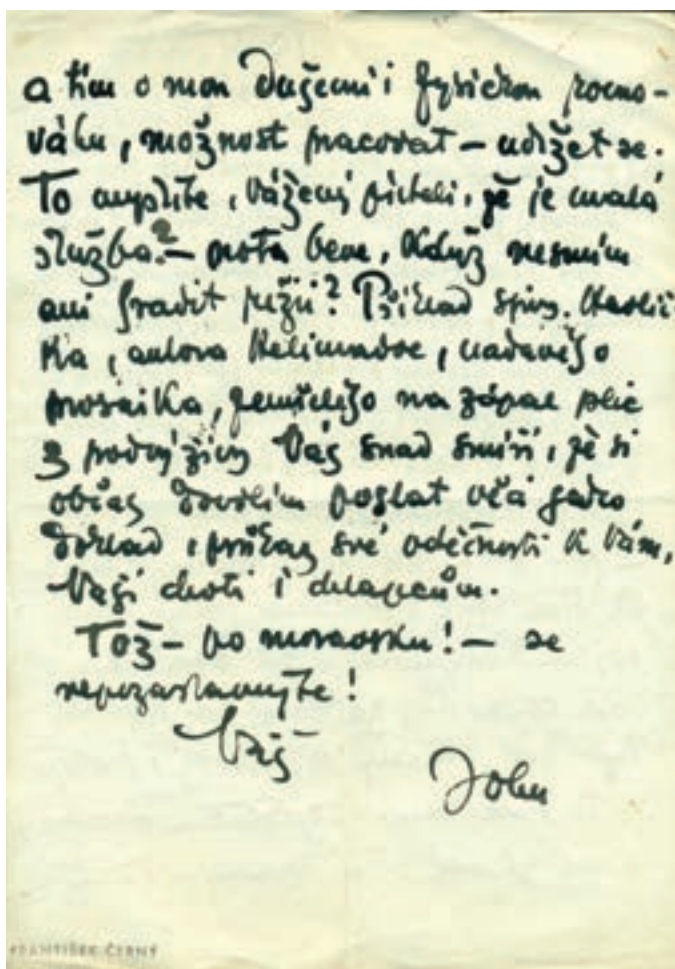 a tím o mou duševní i fysickou rovno-
váhu, možnost pracovat – udržet se.
To myslíte, Vážený příteli, že je malá
služba? – nota bene, když nesmím
ani hradit režii? Příklad spis. Havlíč-
ka, autora Helimadoe, nadaného
prosaika, zemřelého na zápal plic
z podvýživy Vás snad smíří, že si
občas dovolím poslat jako
doklad i průkaz své vděčnosti k Vám,
Vaší choti i chlapcům.
Tož – po moravsku! – se
nepozastavujte!
Váš
John
FRANTIŠEK ČERNÝ